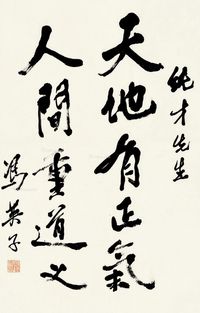 純才先生
天地有正氣
人間重道义
馮英子